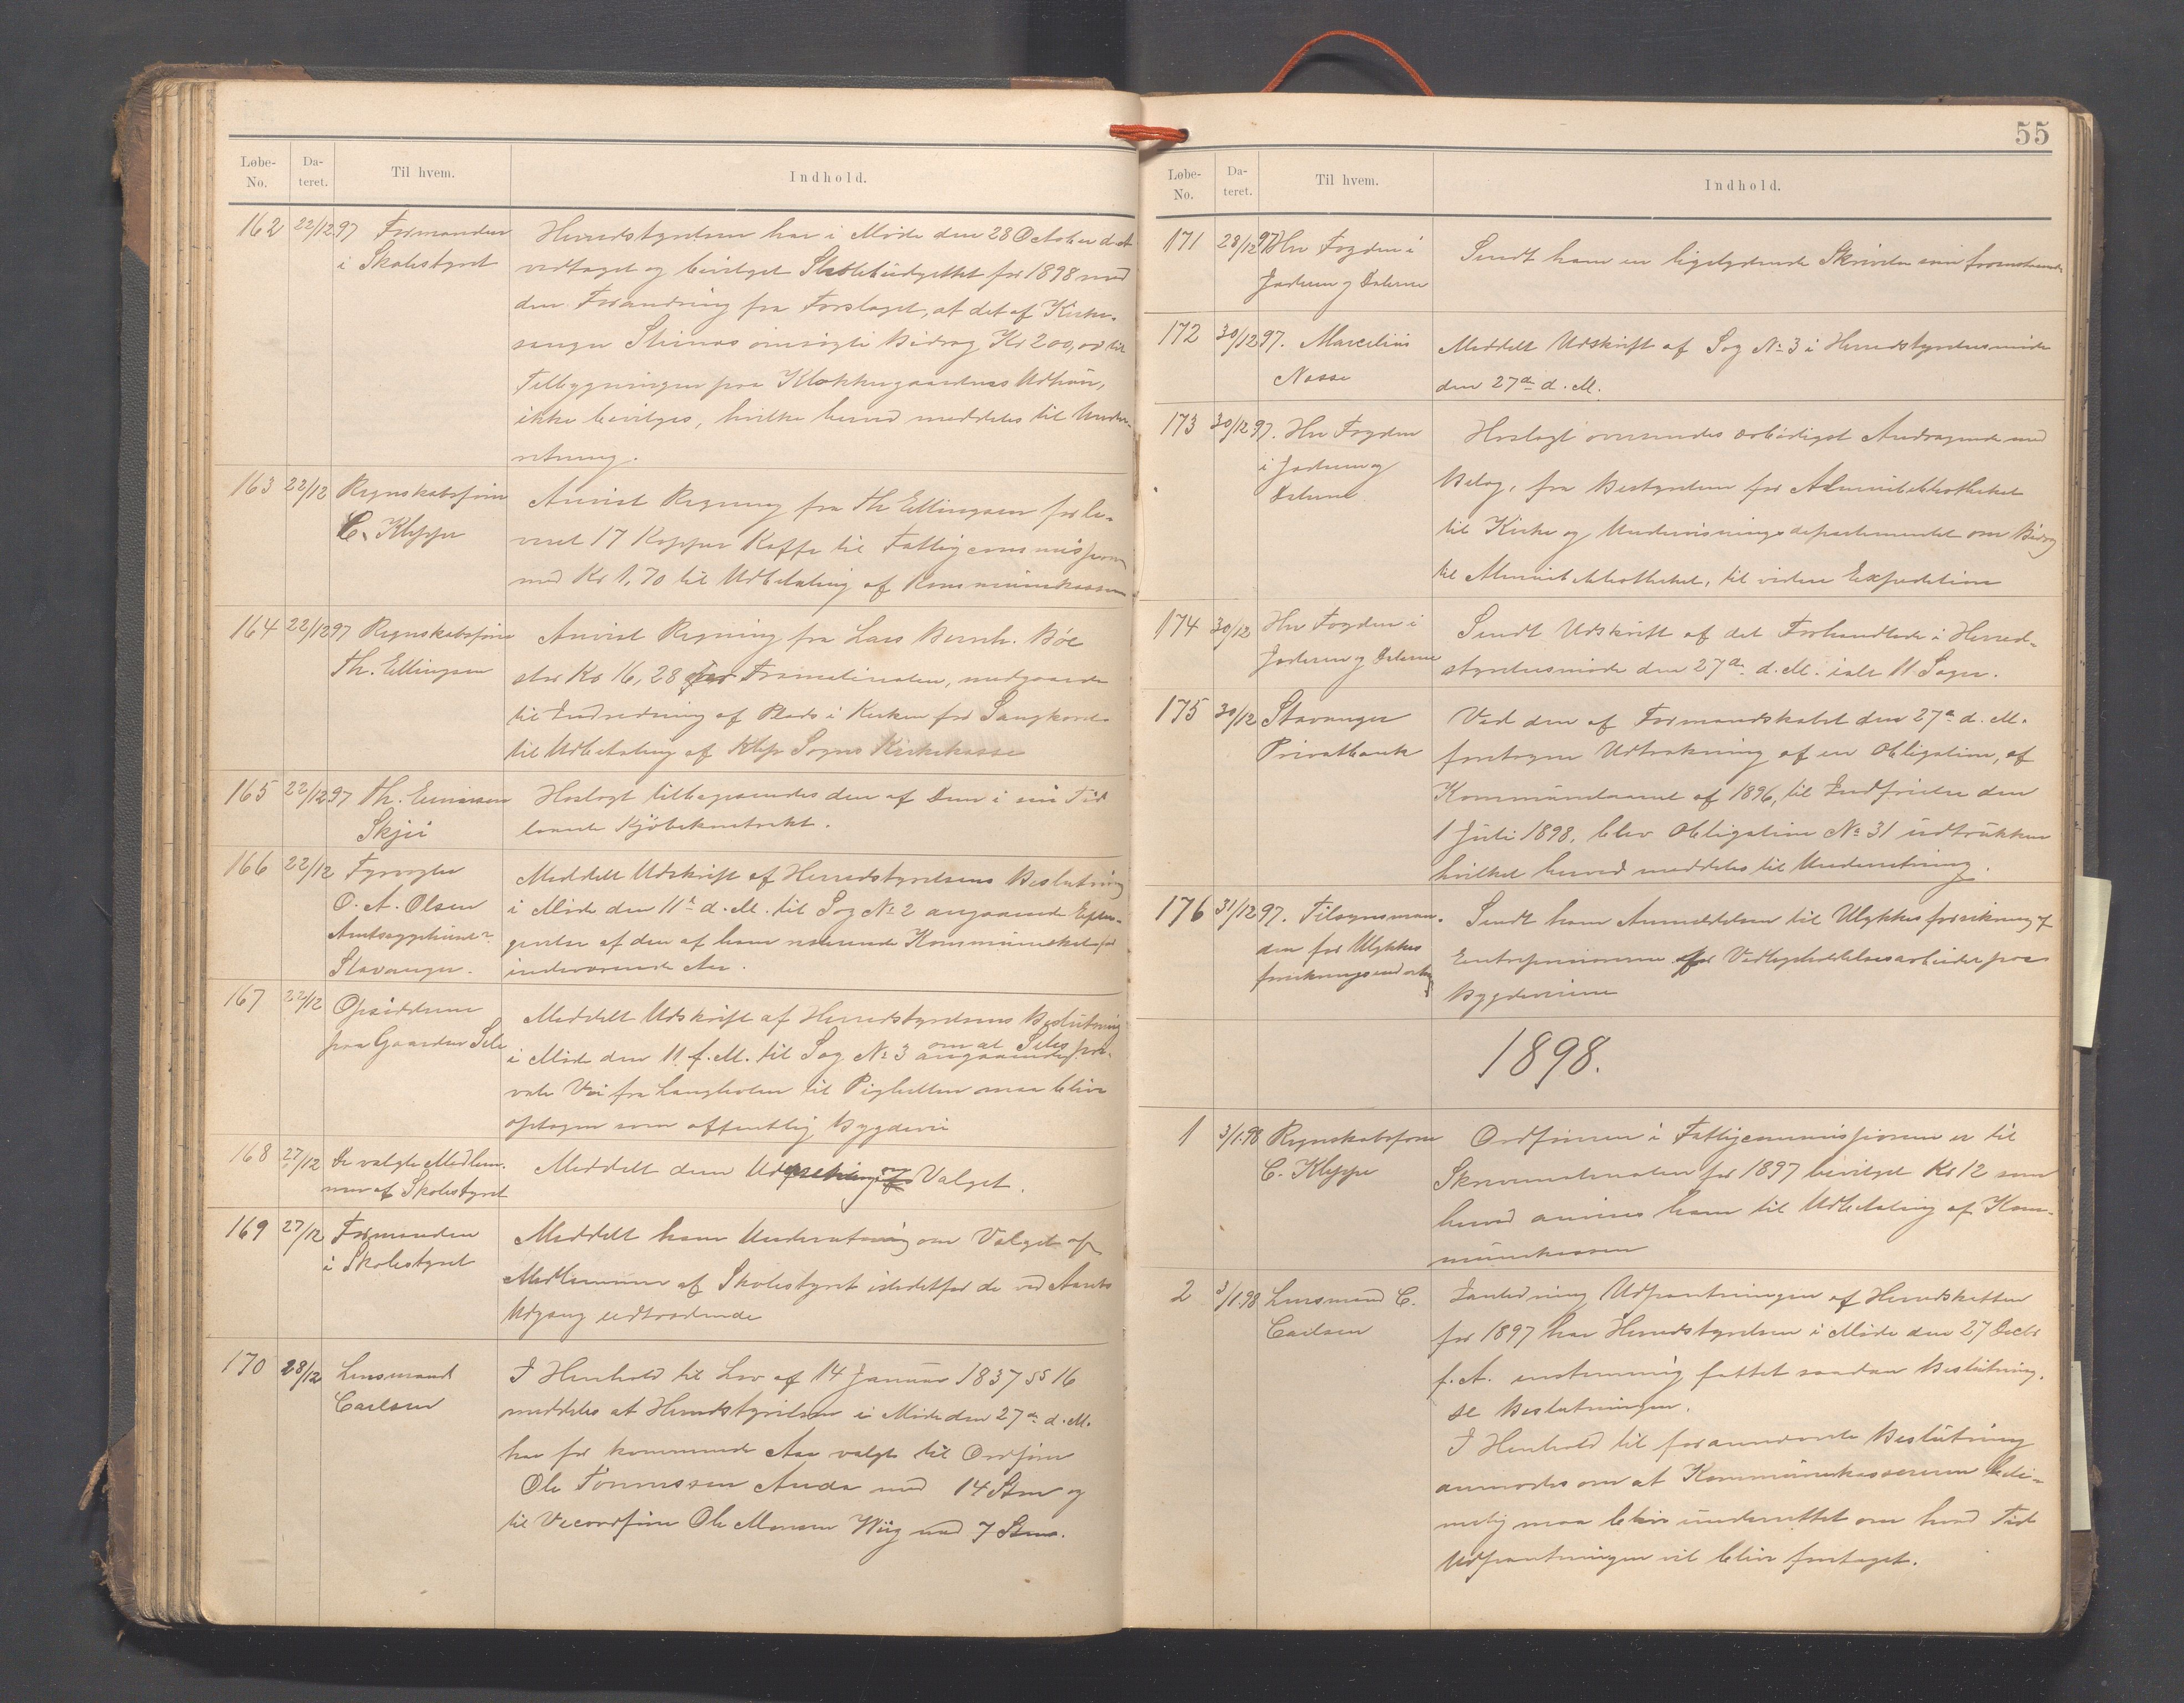 Løbe-No. Da-teret. Til hvem. Indhold.
162 22/12 97 Formanden i Skolestyret
Herredstyrelsen har i Møde den 28 October d. A.
vedtaget og bevilget Skolebudgettet for 1898 med
den Forandring fra Forslaget, at det af Kirke-
sanger Stennes ansøgte Bidrag Kr 200,00 til
Tilbygningen paa Klokkergaardens Udhus,
ikke bevilges, hvilke herved meddeles til Under-
retning.
163 22/12 Regnskabsfører C. Kleppe
Anvist Regning fra Th Ellingsen for le-
veret 17 Kopper Kaffe til Fattigcommisjonen
med Kr 1,70 til Udbetaling af Kommunekassen
164 22/12 97 Regnskabsfører Th. Ellingsen
Anvist Regning fra Lars Bernh. Bøe
stor Kr 16,28 for Tramaterialer, medgaaede
til Indredning af Plads i Kirken for Sangkoret
til Udbetaling af Klep Sogns Kirkekasse
165 22/12 97 Th. Skjei
Hoslagt tilbagesendes den af Dem i sin Tid
laante Kjøbekontrakt.
166 22/12 Fyrvogter O. A. Olsen Stavanger.
Meddelt Udskrift af Herredstyrelsens Beslutning
i Møde den 11te d. M. til Sag No 2 angaaende Efter-
givelse af den af ham Kommuneskat for
indeværende Aar.
167 22/12 Opsidderne paa Gaarden Sele
Meddelt Udskrift af Herredstyrelsens Beslutning
i Møde den 11 f. M. til Sag No 3 angaaende om at Seles pri-
vate Vei fra Langholen til maa blive
optagen som offentlig Bygdevei
168 27/12 De valgte Medlem-
mer af Skolestyret
Meddelt dem om Valget.
169 27/12 Formanden i Skolestyret
Meddelt ham Underretning om Valget af
Medlemmer af Skolestyret istedetfor de ved Aarets
Udgang udtrædende
170 28/12 Lensmand Carlsen
I Henhold til Lov af 14 Januar 1837 §§ 16
meddeles at Herredstyrelsen i Møde den 27de d. M.
har for kommende Aar valgt til Ordfører
Ole Tønnessen Anda med 14 Stm og
til Viceordfører Ole Monsen Wiig med 7 Stm.
55
Løbe-No. Da-teret. Til hvem. Indhold.
171 28/12 97 Hr Fogden i Jæderen og Dalerne
Sendt ham en ligelydende Skrivelse som foranstaaende
172 30/12 97. Marcelius Nesse
Meddelt Udskrift af Sag No 3 i Herredstyrelsesmøde
den 27de d. M.
173 30/12 97. Hr Fogden i Jæderen og Dalerne
Hoslagt oversendes ærbødigst Andragende med
Bilag, fra Bestyrelsen for Almuebibliotheket
til Kirke og Undervisningsdepartementet om Bidrag
til Almuebibliotheket, til videre Expedition
174 30/12 Hr Fogden i Jæderen og Dalerne
Sendt Udskrift af det Forhandlede i Herred-
styrelsesmøde den 27de d. M. ialt 11 Sager.
175 30/12 Stavanger Privatbank
Ved den af Formandskabet den 27de d. M.
foretagne Udtrækning af en Obligation, af
Kommunelaanet af 1896, til Indfrielse den
1 Juli 1898, blev Obligation No 31 udtrukken
hvilket herved meddeles til Underretning.
176 31/12 97. Tilsynsman-
den for Ulykkes
Sendt ham Anmeldelsen til Ulykkesforsikring af
Entreprenørerne for Vedligeholdelsesarbeider paa
Bygdeveiene
1898.
1 3/1.98 Regnskabsfører C. Kleppe
Ordføreren i Fattigcommissionen er til
Skrivematerialer for 1897 bevilget Kr 12 som
herved anvises ham til Udbetaling af Kom-
munekassen
2 3/1.98 Lensmand C. Carlsen
Ianledning Udpantningen af Herredskatten
for 1897 har Herredstyrelsen i Møde den 27 Decbr
f. A. enstemmig fattet saadan Beslutning.
se Beslutningen.
I Henhold til foranførte Beslutning
anmodes om at Kommunekassereren beti-
melig maa blive underrettet om hvad Tid
Udpantningen vil blive foretaget.